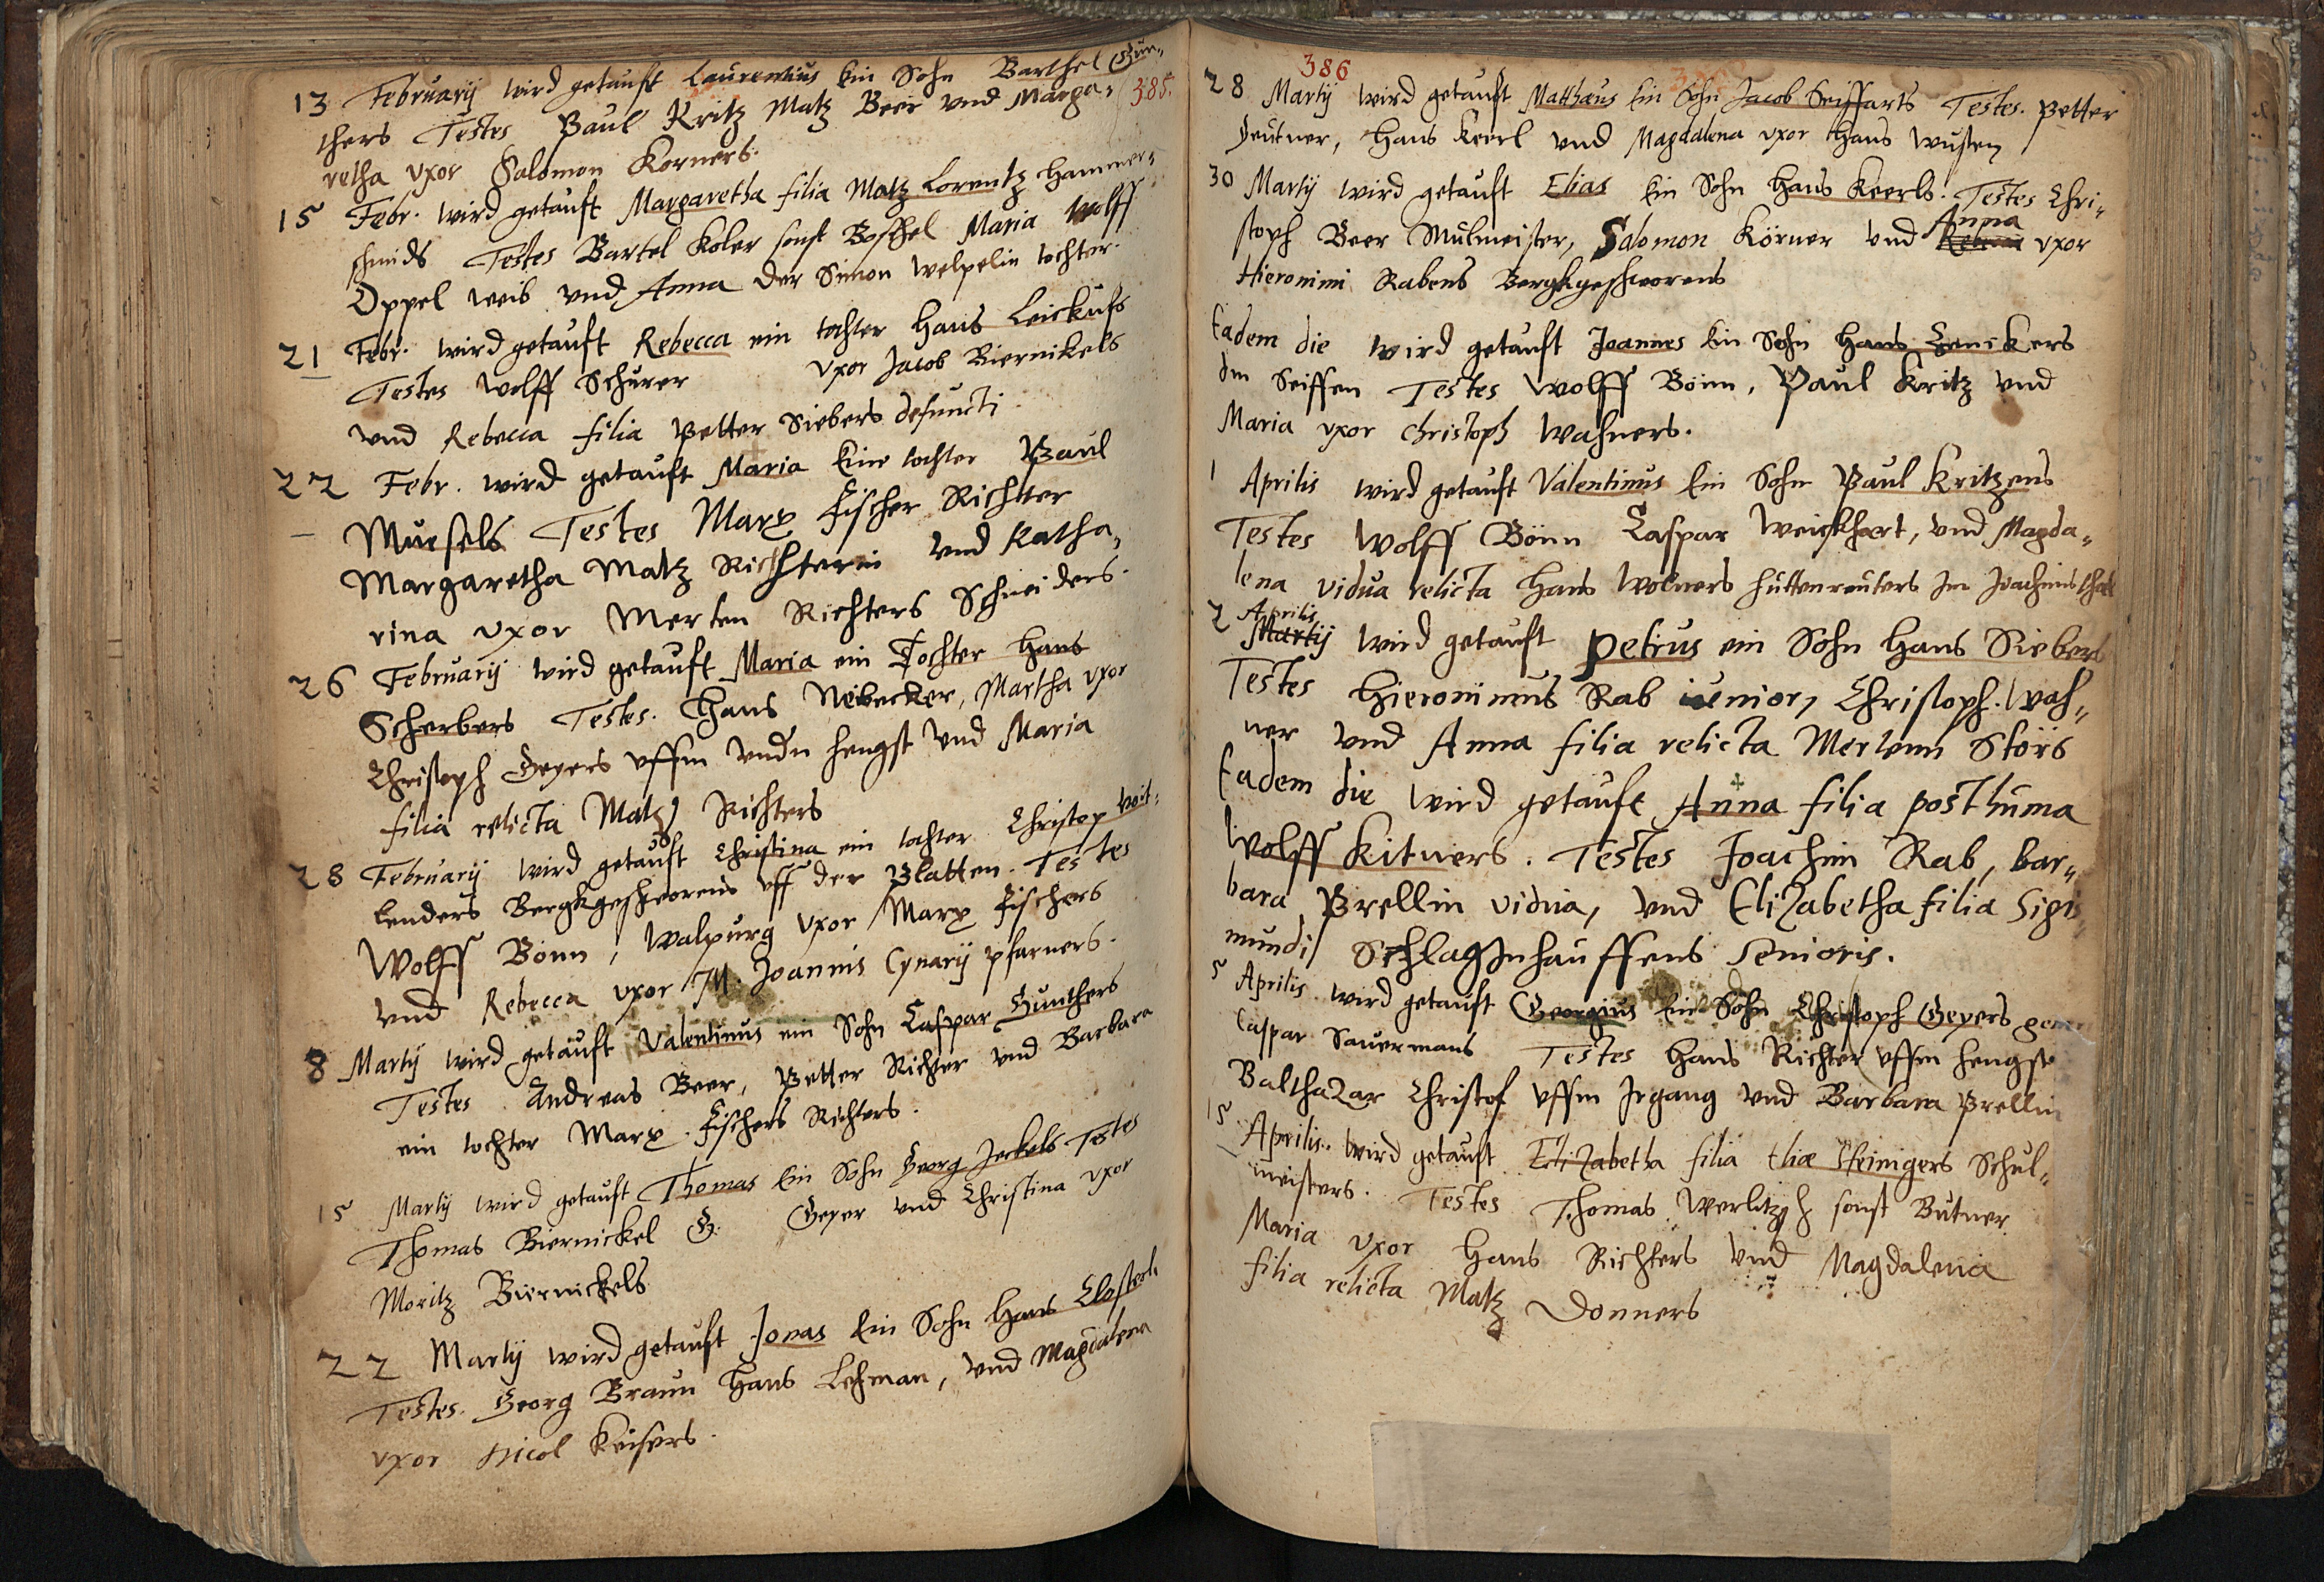 13 Februarij wird getauft Laurentius Ein Sohn Barthel Gün-
385.
thers Testes Paul Kritz Matz Beer vnd Marga-
retha vxor Salomon Korners.
15 Febr. wird getauft Margaretha filia Matz Lorentz Hammer-
schmids Testes Bartel Koler sonst Boschel Maria Wolff
Oppel weib vnd Anna der Simon Welpelin tochter.
21 Febr. wird getauft Rebecca ein tochter Hans Leickufs
Testes Wolff Schürer vxor Jacob Biernikels
vnd Rebecca filia Petter Siebers defuncti
22 Febr. wird getauft Maria Eine tochter Paul
Mursels Testes Marx Fischer Richtter
Margaretha Matz Richsterin vnd Katha-
rina vxor Merten Richters Schneiders.
26 Februarij wird getauft Maria ein Tochter Hans
Scherbers Testes. Hans Neibecker, Martha vxor
Christoph Geyers vffm vndn Hengst vnd Maria
filia relicta Matz Richters
28 Februarij wird getauft Christina ein tochter Christop Voit-
lenders Bergkgeschworens vff der Blatten. Testes
Wolff Bönn, Walpurg vxor Marx Fischers
vnd Rebecca vxor M. Joannis Cynarij pfarners.
8 Martij wird getauft Valentinus ein Sohn Caspar Gunthers
Testes Andreas Beer, Petter Richter vnd Barbara
ein tochter Marx Fischers Richters.
15 Martij wird getauft Thomas Ein Sohn Georg Jeckels Testes
Thomas Biernickel G. Geyer vnd Christina vxor
Moritz Biernickels
22 Martij wird getauft Jonas Ein Sohn Hans
Testes. Georg Braun Hans Lehman, vnd Magdalena
vxor Nicol Keisers.
386
28 Martij wird getauft Matthæus Ein Sohn Jacob Seiffarts Testes. Petter
Zeutner, Hans Keerl vnd Magdalena vxor Hans Wusten
30 Martij wird getauft Elias Ein Sohn Hans Keerls. Testes Chri-
Anna
stoph Beer Mulmeister, Salomon Körner vnd Rebecca vxor
Hieronimi Rabens Bergkgeschworens
Eadem die wird getauft Joannes Ein Sohn Hans Zenckers
Im Seiffen Testes Wolff Bönn, Paul Kritz vnd
Maria vxor Christoph Wahners.
1 Aprilis wird getauft Valentinus Ein Sohn Paul Kritzens
Testes Wolff Bönn Caspar Weickhart, vnd Magda-
lena vidua relicta Hans Wolners huttenreuters Im Joachimsthal
Aprilis
2 Martij wird getauft Petrus ein Sohn Hans Siebers
Testes Hieronimus Rab iunior, Christoph. Wah-
ner vnd Anna filia relicta Mertenn Störs
Eadem die wird getauft Anna filia posthuma
Wolff Kitners. Testes Joachim Rab, bar-
bara Prellin vidua, vnd Elizabetha filia Sigis
mundi Schlaginhauffens senioris.
5 Aprilis wird getauft Georgius Ein Sohn Christoph Geyers
Caspar Sauermans Testes Hans Richter vffm Hengst
Balthazar Christof vffm Irgang vnd Barbara Prellin
15 Aprilis. wird getauft Elizabetha filia Eliæ Steinigers Schul-
meisters. Testes Thomas Werlitzsch sonst Butner
Maria vxor Hans Richters vnd Magdalena
filia relicta Matz Donners